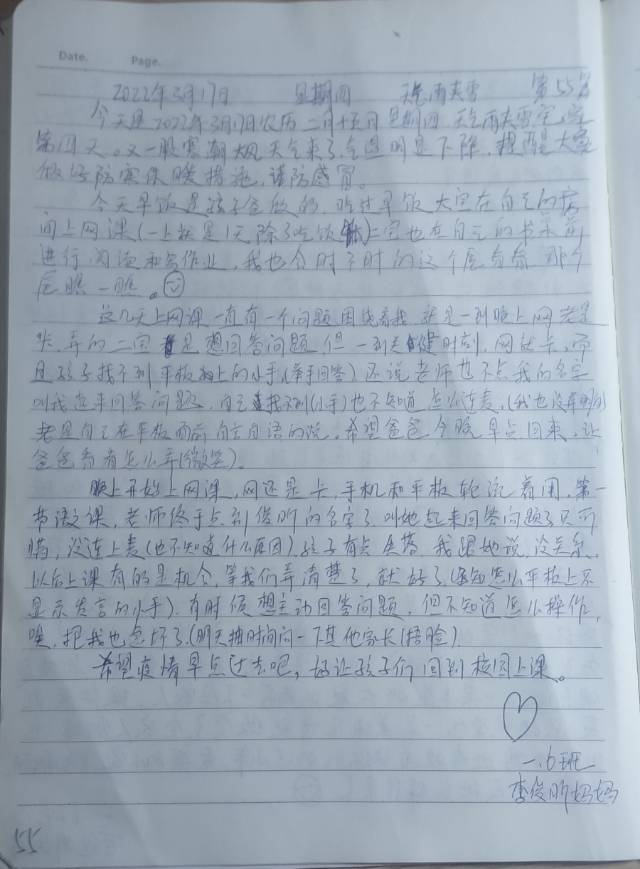 Date. Page.
2022年3月17日 星期四 天气雨夹雪 第55篇
今天是2022年3月17日农历二月十五日 星期四 天气雨夹雪
第四天。又一股寒潮大风天气来了气温明显下降,提醒大家
做好防寒保暖措施,谨防感冒。
今天早饭是孩子爸做的,吃过早饭 大宝在自己的房
间上网课(一上就是1天除了吃饭)二宝也在自己的书桌前
进行阅读和写作业,我也会时不时的这个屋看看 那个
屋瞧一瞧。
这几天上网课一直有一个问题困绕着我 就是一到晚上网老是
卡,弄的二宝是想回答问题 但一到关键时刻,网就卡,而
且孩子找不到平板上的小手(举手回答)还说老师也不点我的名字
叫我起来回答问题,自己找不到(小手)也不知道怎么连麦,(我也没弄明白)
老是自己在平板面前自言自语的说,希望爸爸今晚早点回来,让
爸爸看看怎么弄(微笑)。
晚上开始上网课,网还是卡,手机和平板轮流着用,第一
节语文课,老师终于点到俊昕的名字了叫她起来回答问题了只可
惜,没连上麦(也不知道什么原因),孩子有点失落 我跟她说,没关系,
以后上课有的是机会,等我们弄清楚了,就好了(不知怎么平板上不
显示发言的小手)有时候想主动回答问题,但不知道怎么操作,
唉,把我也急坏了(明天抽时间问一下其他家长)(捂脸)
希望疫情早点过去吧,好让孩子们回到校园上课。
一.6班
李俊昕妈妈
55